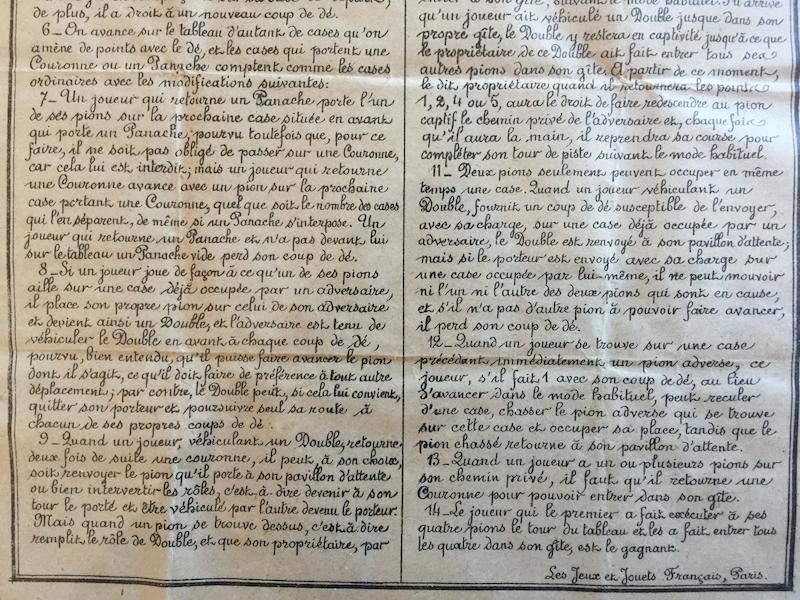 de plus, il a droit à un nouveau coup de dé.
6_ On avance sur le tableau d'autant de cases qu'on
amène de points avec le dé, et les cases qui portent une
Couronne ou un Panache comptent comme les cases
ordinaires avec les modifications suivantes:
7_ Un joueur qui retourne un Panache porte l'un
de ses pions sur la prochaine case située en avant
qui porte un Panache, pourvu toutefois que, pour ce
faire, il ne soit pas obligé de passer sur une Couronne,
car cela lui est interdit; mais un joueur qui retourne
une Couronne avance avec un pion sur la prochaine
case portant une Couronne, quel que soit le nombre des cases
qui l'en séparent, de même si un Panache s'interpose. Un
joueur qui retourne un Panache et n'a pas devant lui
sur le tableau un Panache vide perd son coup de dé.
8_ Si un joueur joue de façon à ce qu'un de ses pions
aille sur une case déjà occupée par un adversaire,
il place son propre pion sur celui de son adversaire
et devient ainsi un Double, et l'adversaire est tenu de
véhiculer le Double en avant à chaque coup de dé,
pourvu, bien entendu, qu'il puisse faire avancer le pion
dont il s'agit, ce qu'il doit faire de préférence à tout autre
déplacement; par contre, le Double peut, si cela lui convient,
quitter son porteur et poursuivre seul sa route à
chacun de ses propres coups de dé.
9_ Quand un joueur, véhiculant un Double, retourne
deux fois de suite une couronne, il peut, à son choix,
soit renvoyer le pion qu'il porte à son pavillon d'attente
ou bien intervertir les rôles, c'est-à-dire devenir à son
tour le porté et être véhiculé par l'autre devenu le porteur.
Mais quand un pion se trouve dessus, c'est-à-dire
remplit le rôle de Double, et que son propriétaire, par
qu'un joueur ait véhiculé un Double jusque dans son
propre gîte, le Double y restera en captivité jusqu'à ce que
le propriétaire de ce Double ait fait entrer tous ses
autres pions dans son gîte. A partir de ce moment,
le dit propriétaire quand il retournera les points
1, 2, 4 ou 5, aura le droit de faire redescendre au pion
captif le chemin privé de l'adversaire et, chaque fois
qu'il aura la main, il reprendra sa course pour
compléter son tour de piste suivant le mode habituel.
11_ Deux pions seulement peuvent occuper en même
temps une case. Quand un joueur véhiculant un
Double, fournit un coup de dé susceptible de l'envoyer,
avec sa charge, sur une case déjà occupée par un
adversaire, le Double est renvoyé à son pavillon d'attente;
mais si le porteur est envoyé avec sa charge sur
une case occupée par lui-même, il ne peut mouvoir
ni l'un ni l'autre des deux pions qui sont en cause,
et s'il n'a pas d'autre pion à pouvoir faire avancer,
il perd son coup de dé.
12_ Quand un joueur se trouve sur une case
précédant immédiatement un pion adverse, ce
joueur, s'il fait 1 avec son coup de dé, au lieu
d'avancer dans le mode habituel, peut reculer
d'une case, chasser le pion adverse qui se trouve
sur cette case et occuper sa place, tandis que le
pion chassé retourne à son pavillon d'attente.
13_ Quand un joueur a un ou plusieurs pions sur
son chemin privé, il faut qu'il retourne une
Couronne pour pouvoir entrer dans son gîte.
14_ Le joueur qui le premier a fait exécuter à ses
quatre pions le tour du tableau et les a fait entrer tous
les quatre dans son gîte, est le gagnant.
Les Jeux et Jouets Français, Paris.